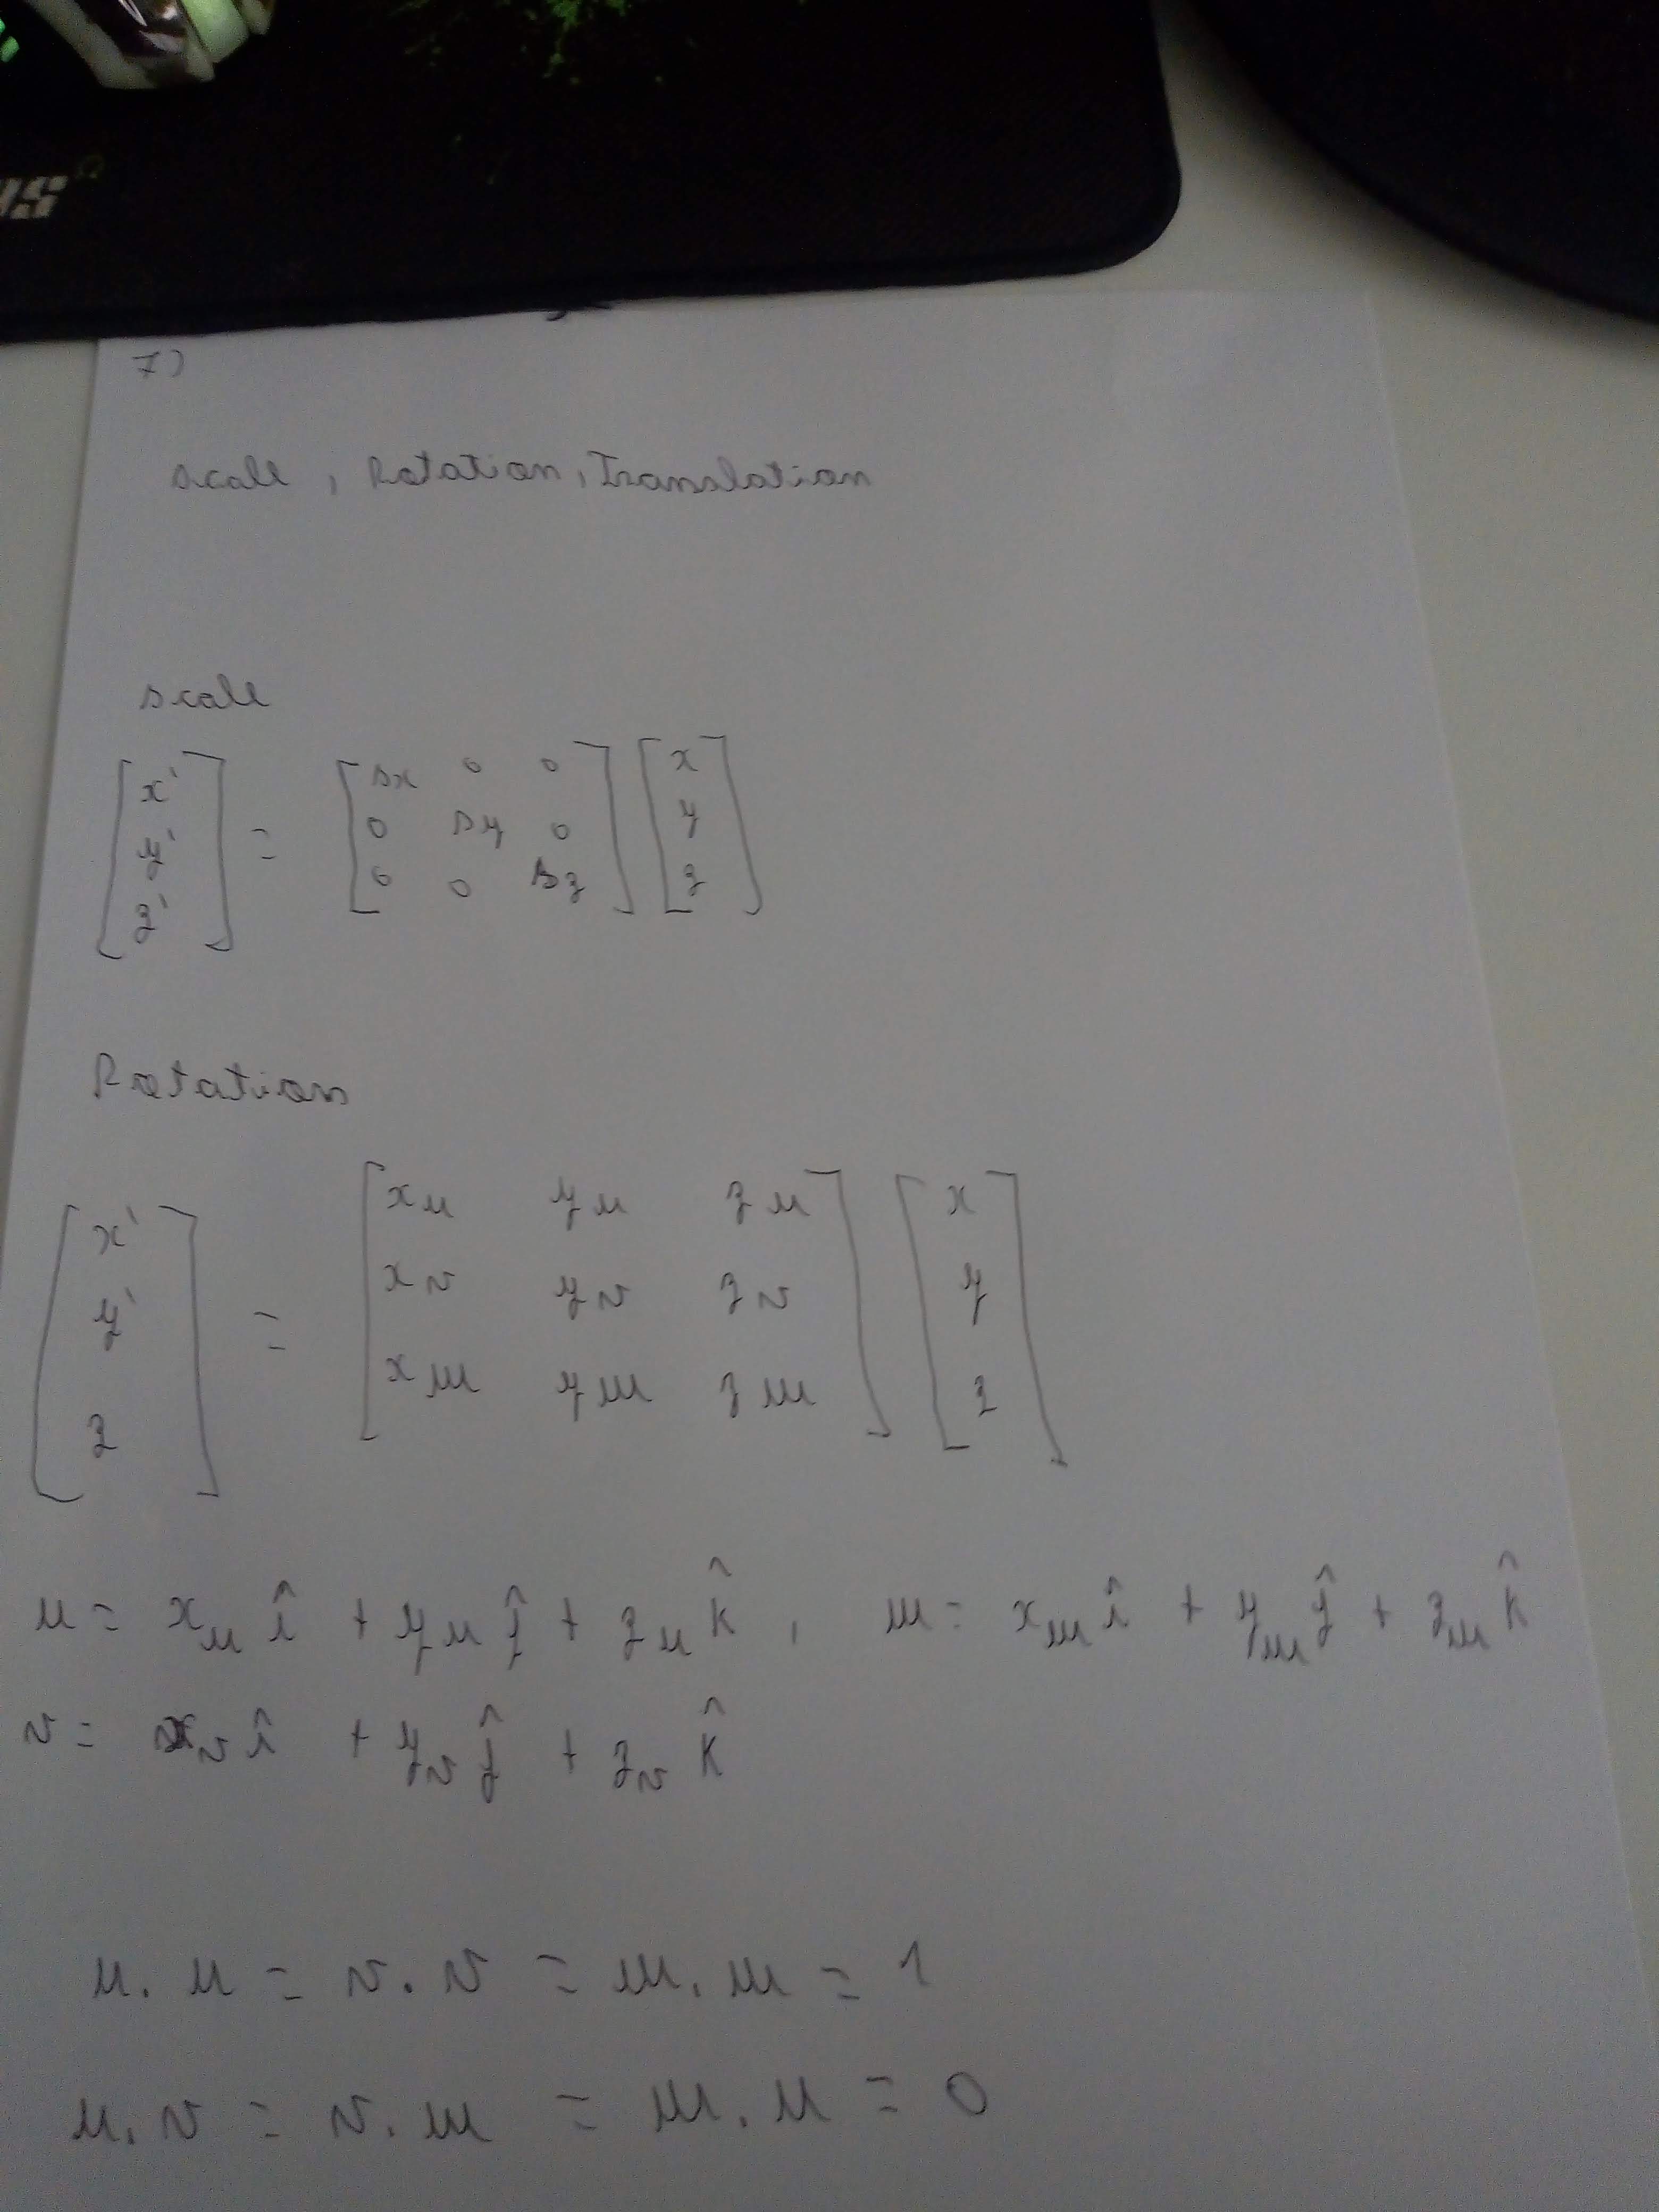 7)
scale, Rotation, Translation
scale
[x' y' z'] = [sx 0 0; 0 sy 0; 0 0 sz] [x y z]
Rotation
[x' y' z] = [xu yu zu; xv yv zv; xw yw zw] [x y z]
u = xu î + yu ĵ + zu k̂, w = xw î + yw ĵ + zw k̂
v = xv î + yv ĵ + zv k̂
u.u = v.v = w.w = 1
u.v = v.w = w.u = 0